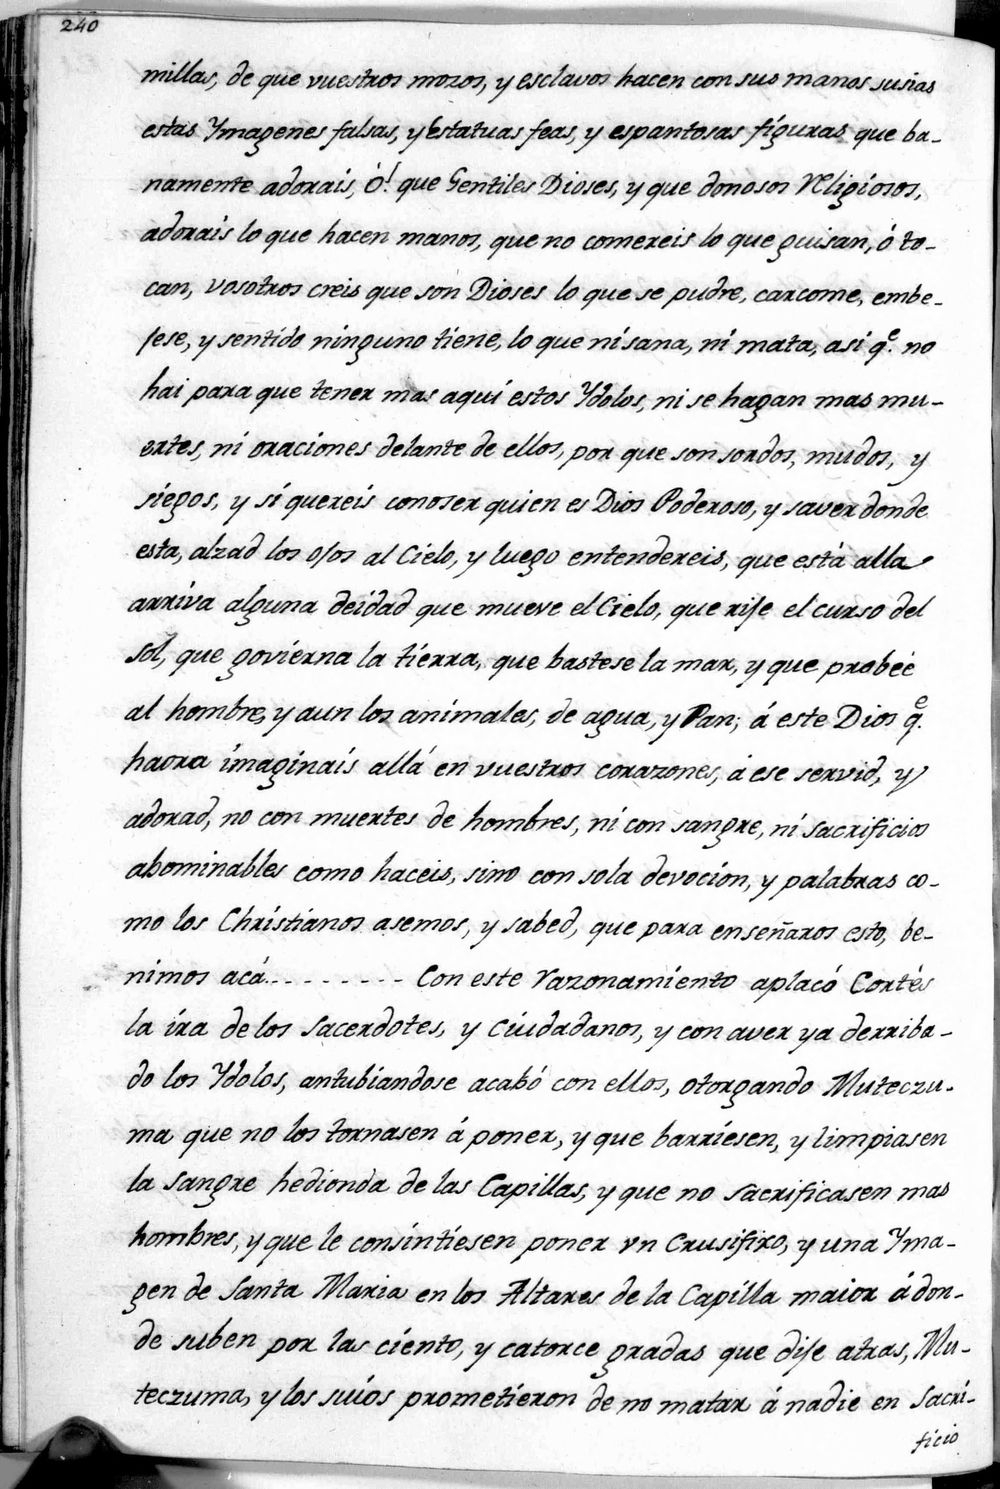 240
millas, de que vuestros mozos, y esclavos hacen con sus manos susias
estas Ymagenes falsas, y Estatuas feas, y espantosas figuras que ba-
namente adorais, ó! que Gentiles Dioses, y que donosos Religiosos,
adorais lo que hacen manos, que no comereis lo que guisan, ó to-
can, vosotros creis que son Dioses lo que se pudre, carcome, embe-
jese, y sentido ninguno tiene, lo que ni sana, ni mata, asi q.e no
hai para que tener mas aquí estos Ydolos, ni se hagan mas mu-
ertes, ni oraciones delante de ellos, por que son sordos, mudos, y
siegos, y si quereis conoser quien es Dios Poderoso, y saver donde
esta, alzad los ojos al Cielo, y luego entendereis, que está alla
arriva alguna deidad que mueve el Cielo, que rije el curso del
sol, que govierna la tierra, que bastese la mar, y que probée
al hombre, y aun los animales, de agua, y Pan; á este Dios q.e
haora imaginais allá en vuestros corazones, á ese servid, y
adorad, no con muertes de hombres, ni con sangre, ni sacrificios
abominables como haceis, sino con sola devoción, y palabras co-
mo los Christianos asemos, y sabed, que para enseñaros esto, be-
nimos acá......... Con este razonamiento aplacó Cortés
la ira de los Sacerdotes, y Ciudadanos, y con aver ya derriba-
do los Ydolos, antubiandose acabó con ellos, otorgando Muteczu-
ma que no los tornasen á poner, y que barriesen, y limpiasen
la sangre hedionda de las Capillas, y que no sacrificasen mas
hombres, y que le consintiesen poner vn Crusifixo, y una Yma-
gen de Santa Maria en los Altares de la Capilla maior á don-
de suben por las ciento, y catorce gradas que dije atras, Mu-
teczuma, y los suios prometieron de no matar á nadie en Sacri-
ficio